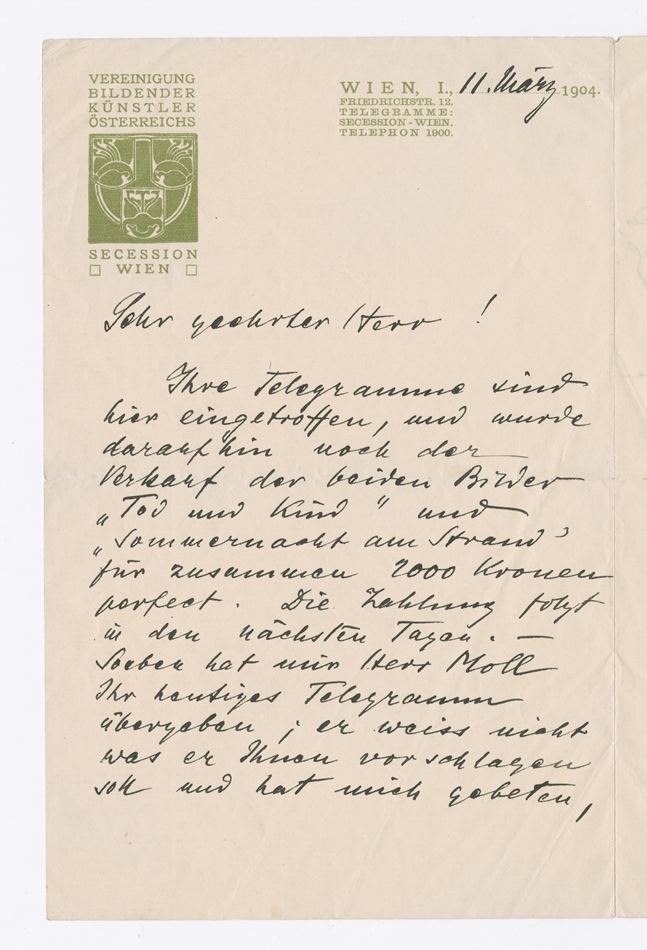 VEREINIGUNG
BILDENDER
KÜNSTLER
ÖSTERREICHS
SECESSION
WIEN
WIEN, I., 11. März 1904.
FRIEDRICHSTR. 12.
TELEGRAMME:
SECESSION-WIEN.
TELEPHON 1900.
Sehr geehrter Herr !
Ihre Telegramme sind
hier eingetroffen, und wurde
daraufhin noch der
Verkauf der beiden Bilder
„Tod und Kind" und
„Sommernacht am Strand"
für zusammen 2000 Kronen
perfect. Die Zahlung folgt
in den nächsten Tagen. —
Soeben hat mir Herr Moll
Ihr heutiges Telegramm
übergeben; er weiss nicht
was er Ihnen vorschlagen
soll und hat mich gebeten,